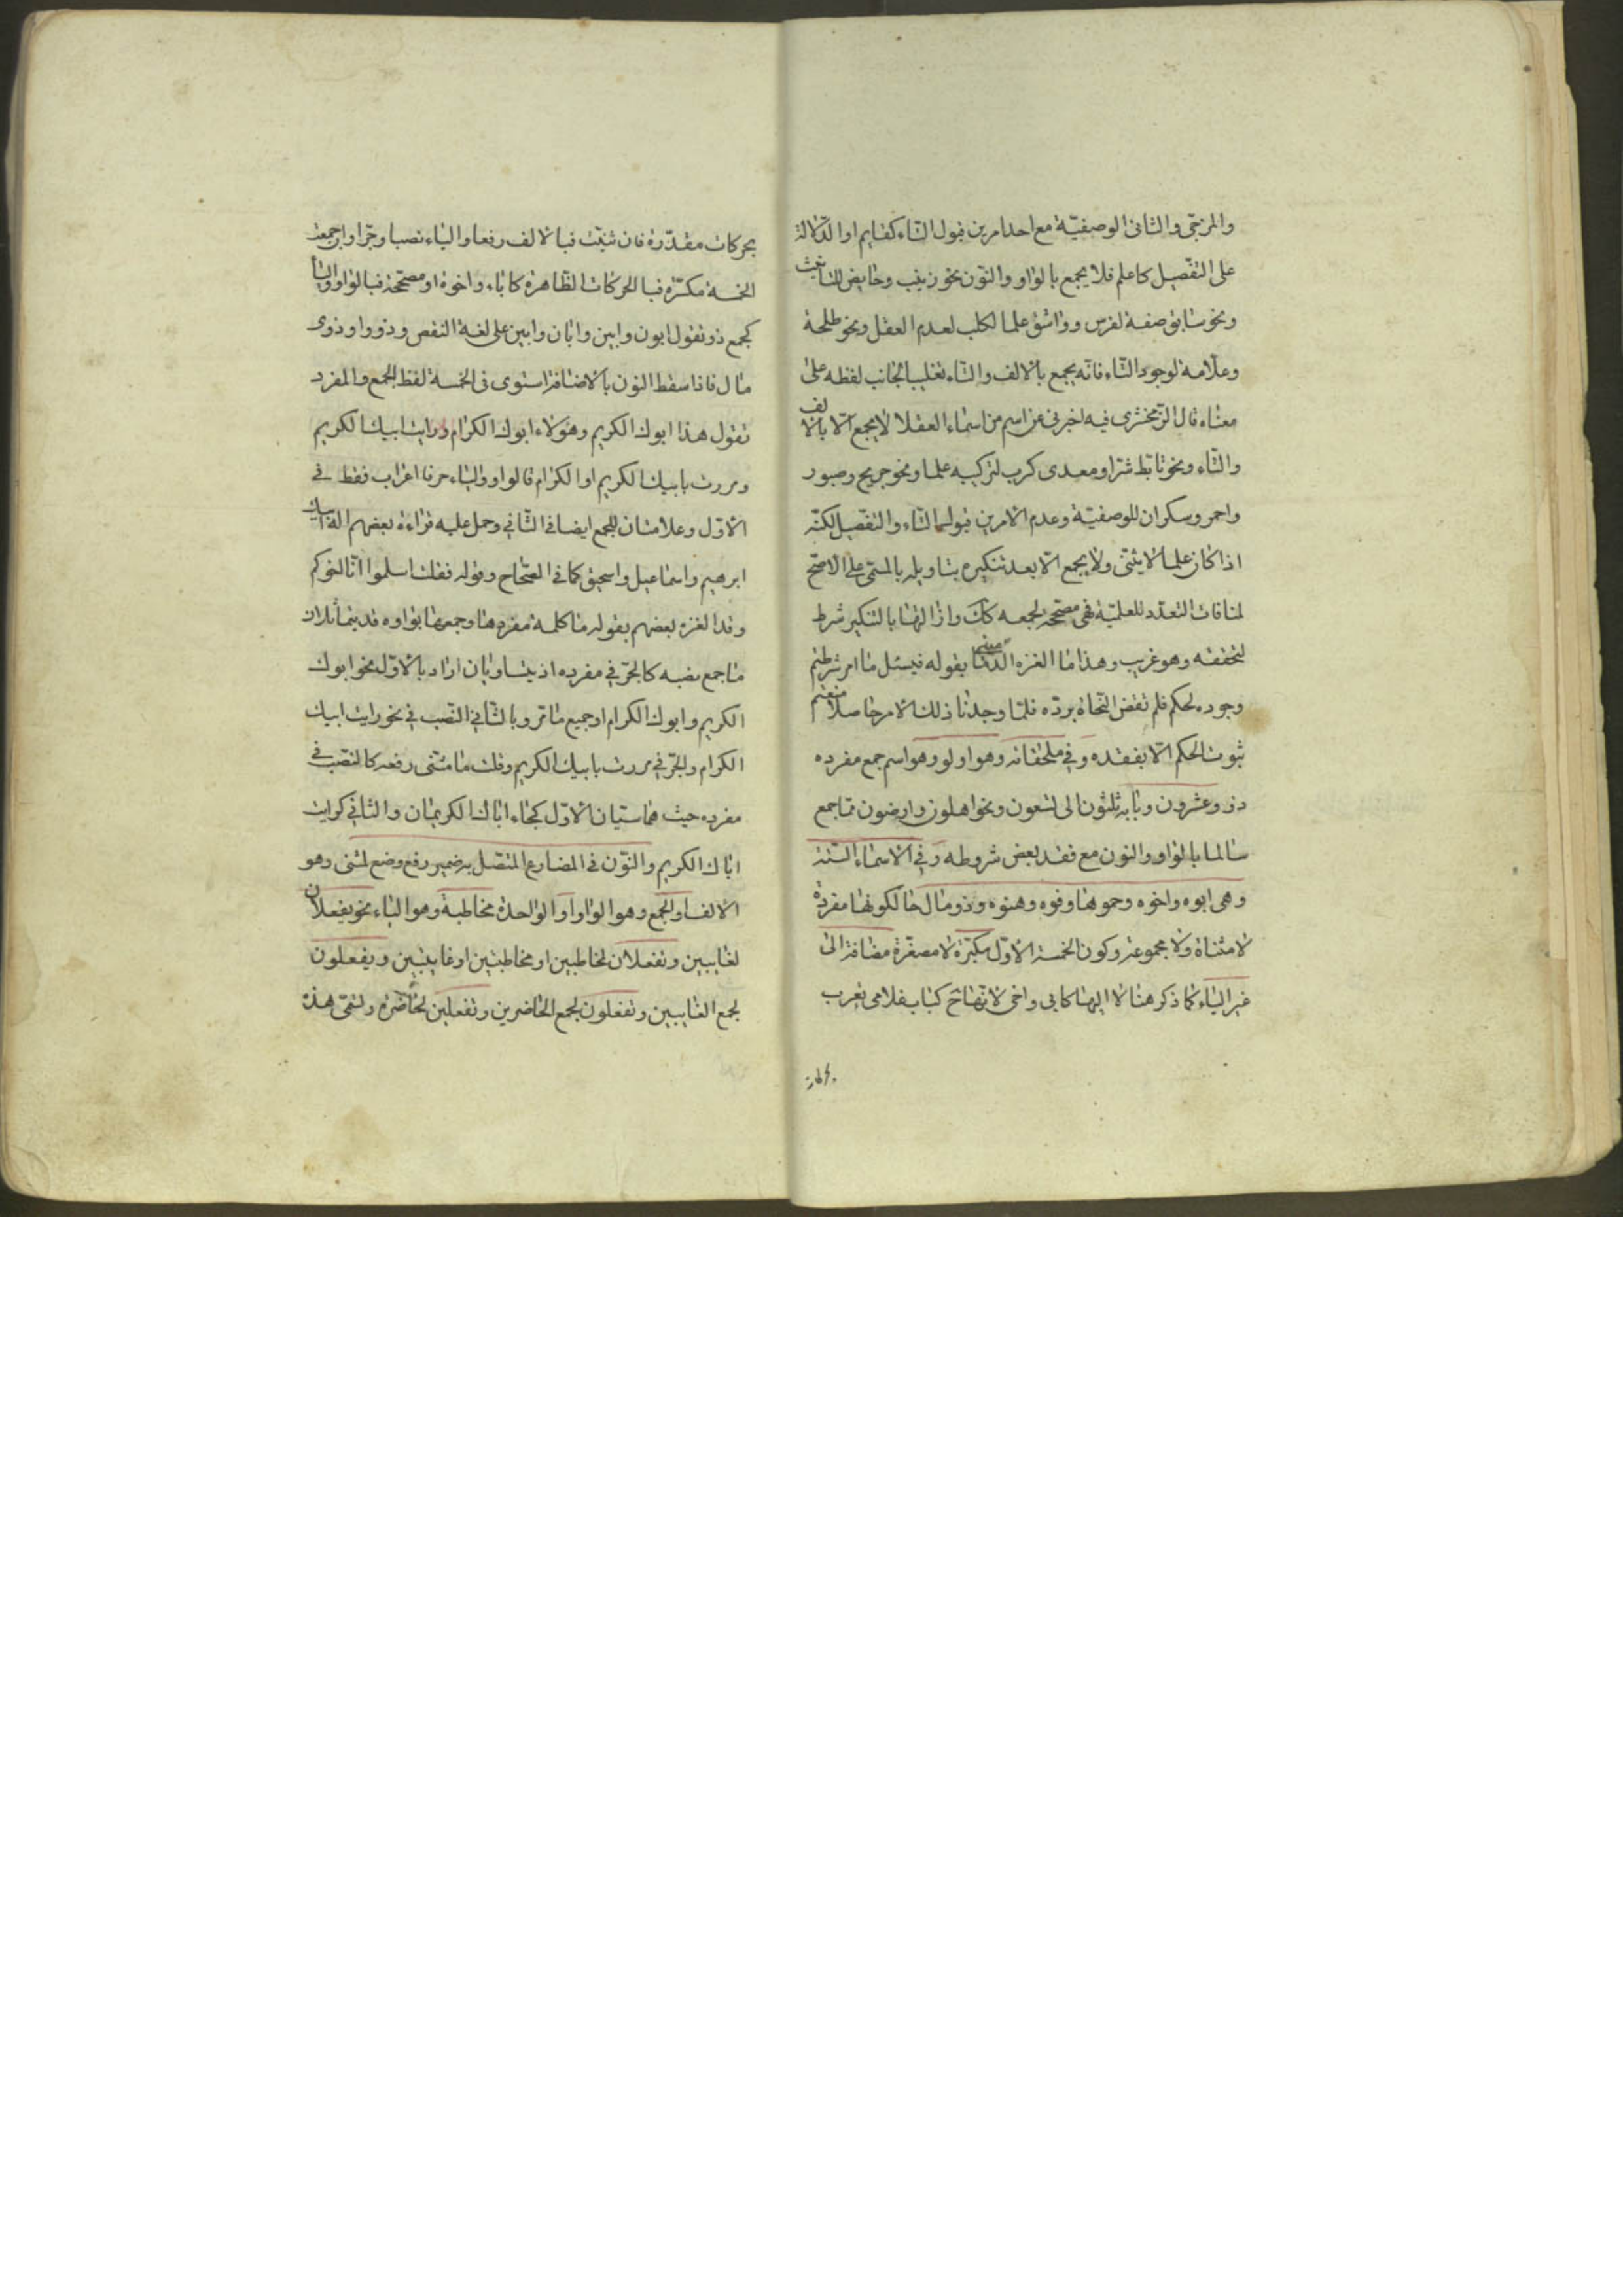 والمزجى والثانى الوصفيّة مع احد امرين قبول التاء كقايم او الدّلالة
على التفضيل كاعلم فلا يجمع بالواو والنون نحو زينب وحايض للتانيث
ونحو سابق صفة لفرس وواشق علما لكلب لعدم العقل ونحو طلحة
وعلّامة لوجود التاء فانّه يجمع بالالف والتاء تغليبا لجانب لفظه على
معناه قال الزمخشرى فيه اخبرنى عن اسم من اسماء العقلا لا يجمع الّا بالالف
والتاء ونحو تابط شرا ومعدى كرب لتركيبه علما ونحو جريح وصبور
واحمر وسكران للوصفيّة وعدم الامرين قبولها التاء والتفضيل لكنّه
اذا كان علما لا يثنّى ولا يجمع الّا بعد تنكيره بتاويله بالمسمّى على الاصحّ
لمنافات التعدد للعلميّة فهى مصحّحة لجمعه كك وازالتها بالتنكير شرط
لتحققه وهو غريب وهذا ما الغزه الدمامينى بقوله فيسئل ما امر شرطتم
وجوده لحكم فلم تقض النحاة بردّه فلمّا وجدنا ذلك الامر حاصلا منعتم
ثبوت الحكم الّا بفقده وفى ملحقاته وهو اولو وهو اسم جمع مفرده
ذو وعشرون وبابه ثلثون الى تسعون ونحو اهلون وارضون ممّا جمع
سالما بالواو والنون مع فقد بعض شروطه وفى الاسماء الستّة
وهى ابوه واخوه وحموها وفوه وهنوه وذو مال حالكونها مفردة
لا مثناة ولا مجموعة وكون الخمسة الاوّل مكبّرة لا مصغّرة مضافة الى
غير الياء كما ذكر هنا لا اليها كابى واخى لانّها ح كباب غلامى تعرب
بحركات
بحركات مقدّرة فان ثنّيت فبالالف رفعا والياء نصبا وجرّا او جمعت
الخمسة مكسّرة فبالحركات الظاهرة كاباء واخوة او مصحّحة فبالواو والياء
كجمع ذو تقول ابون وابين وابان وابين على لغة النقص وذووا وذوى
مال فاذا سقط النون بالاضافة استوى فى الخمسة لفظ الجمع والمفرد
تقول هذا ابوك الكريم وهؤلاء ابوك الكرام ورايت ابيك الكريم
ومررت بابيك الكريم او الكرام فالواو والياء حرفا اعراب فقط فى
الاوّل وعلامتان للجمع ايضا فى الثانى وحمل عليه قراءة بعضهم اله ابيك
ابرهيم واسماعيل واسحق كما فى الصّحاح وقوله فقلنا اسلموا انّا اخوكم
وقد الغزه بعضهم بقوله ما كلمة مفردها وجمعها بواوه قد يتماثلان
ما جمع نصبه كالجرّ فى مفرده اذ يتساويان اراد بالاوّل نحو ابوك
الكريم وابوك الكرام او جميع ما مرّ وبالثانى النصب فى نحو رايت ابيك
الكرام والجرّ فى مررت بابيك الكريم وقلت ما مثنى رفعه كالنصب فى
مفرده حيث هما سيّان الاوّل كجاء اباك الكريمان والثانى كرايت
اباك الكريم والنون فى المضارع المتصل به ضمير رفع وضع لمثنى وهو
الالف او لجمع وهو الواو او الواحدة مخاطبة وهو الياء نحو يفعلان
لغايبين وتفعلان لمخاطبين او مخاطبتين او غايبتين ويفعلون
لجمع الغايبين وتفعلون لجمع الحاضرين وتفعلين لحاضرة وتسمّى هذه